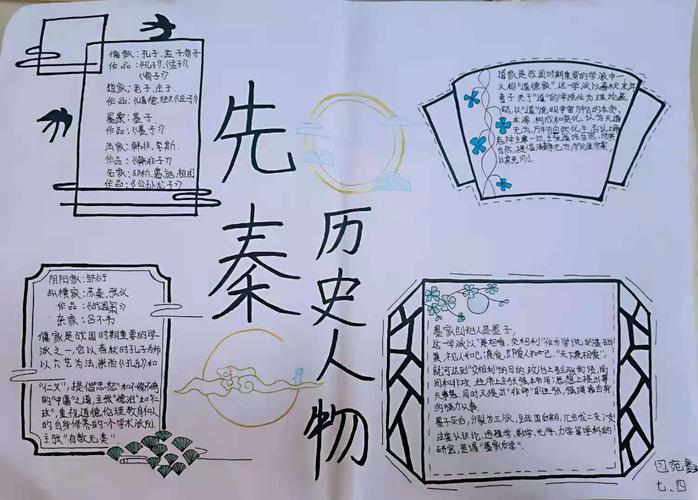 先秦
历史人物
儒家：孔子、孟子、荀子
作品：《孔子》、《孟子》
《荀子》
道家：老子、庄子
作品：《道德经》《庄子》
墨家：墨子
作品：《墨子》
法家：韩非、李斯
作品：《韩非子》
名家：邓析、惠施、
作品：《公孙龙子》
道家是战国时期重要的学派中一
又称"道德家"这一学派以春秋末年
老子关于"道"的学说作为理论基
础，以"道"说明宇宙万物的本质、
本源、构成和变化，认为天道
无为，万物自然化生，否认上帝
鬼神主宰一切，主张道法自然，顺其
自然，提倡清静无为，
以柔克刚。
阴阳家：邹衍
纵横家：苏秦、张仪
作品：《战国策》
杂家：吕不韦
儒家是战国时期重要的学
派之一，它以春秋时孔子为师
以六艺为法，崇尚《礼乐》和
"仁义"，提倡忠恕"和不偏不倚
的"中庸"之道，主张"德治"和"仁
政"，重视道德伦理教育和人
的自身修养的一个学术派别
主张"有教无类"
墨家创始人是墨子，
这一学派以"兼相爱，交相利"作为学说的基础
兼，视人如己；兼爱，即爱人如己。"天下兼相爱"，
就可达到"交相利"的目的，政治上主张尚贤，尚
同和非攻，经济上主张强本节用；思想上提出尊
天事鬼。同时又提出"非命"的主张，强调靠自身
的强力从事。
墨子死后，分裂为三派，至战国后期，汇合成二支：一支
注重认识论、逻辑学、数学、光学、力学等学科的
研究，是谓"墨家后学"。
七、四